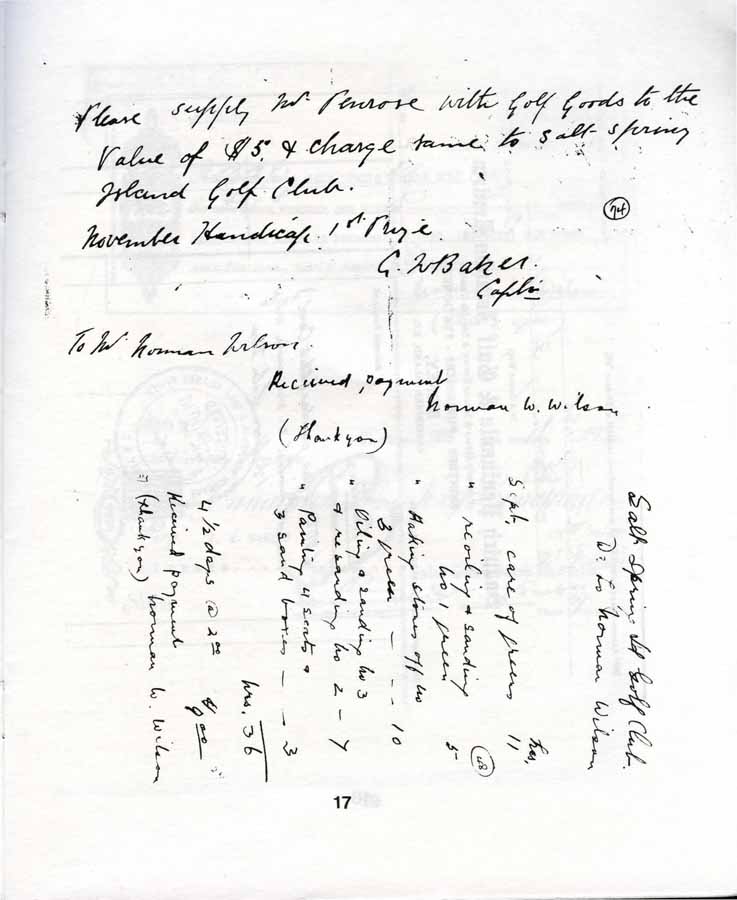 Please supply Mr Penrose with Golf Goods to the
Value of $5. & charge same to Salt Spring
Island Golf Club.
November Handicap 1st Prize.
G. W Baker.
Captn
74
To Mr Norman Wilson.
Received payment
Norman W. Wilson
(Thankyou)
Salt Spring Id Golf Club.
Dr to Norman Wilson
hrs,
Sept, care of greens 11
" reoiling & sanding
no 1 green 5
68
" Raking stones off no
3 green — — - 10
" Oiling & sanding no 3
& resanding no 2 — 7
" Painting 4 seats &
3 sand boxes — - 3
hrs. 36
4 1/2 days @ 2.00 $9.00
Received payment
(thankyou) Norman W. Wilson
17